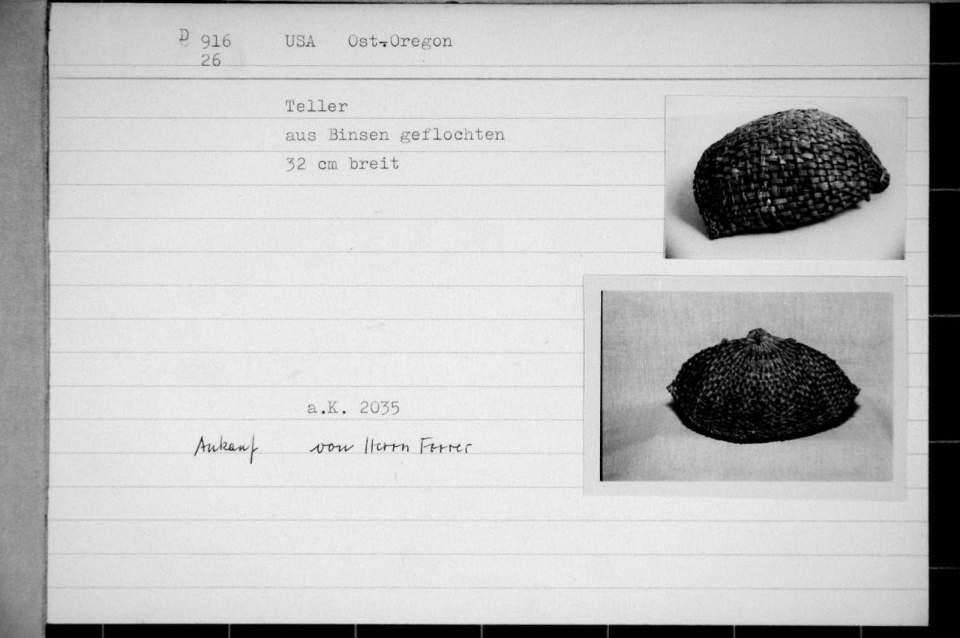 D 916 USA Ost-Oregon
26
Teller
aus Binsen geflochten
32 cm breit
a.K. 2035
Ankauf von Herrn Forrer